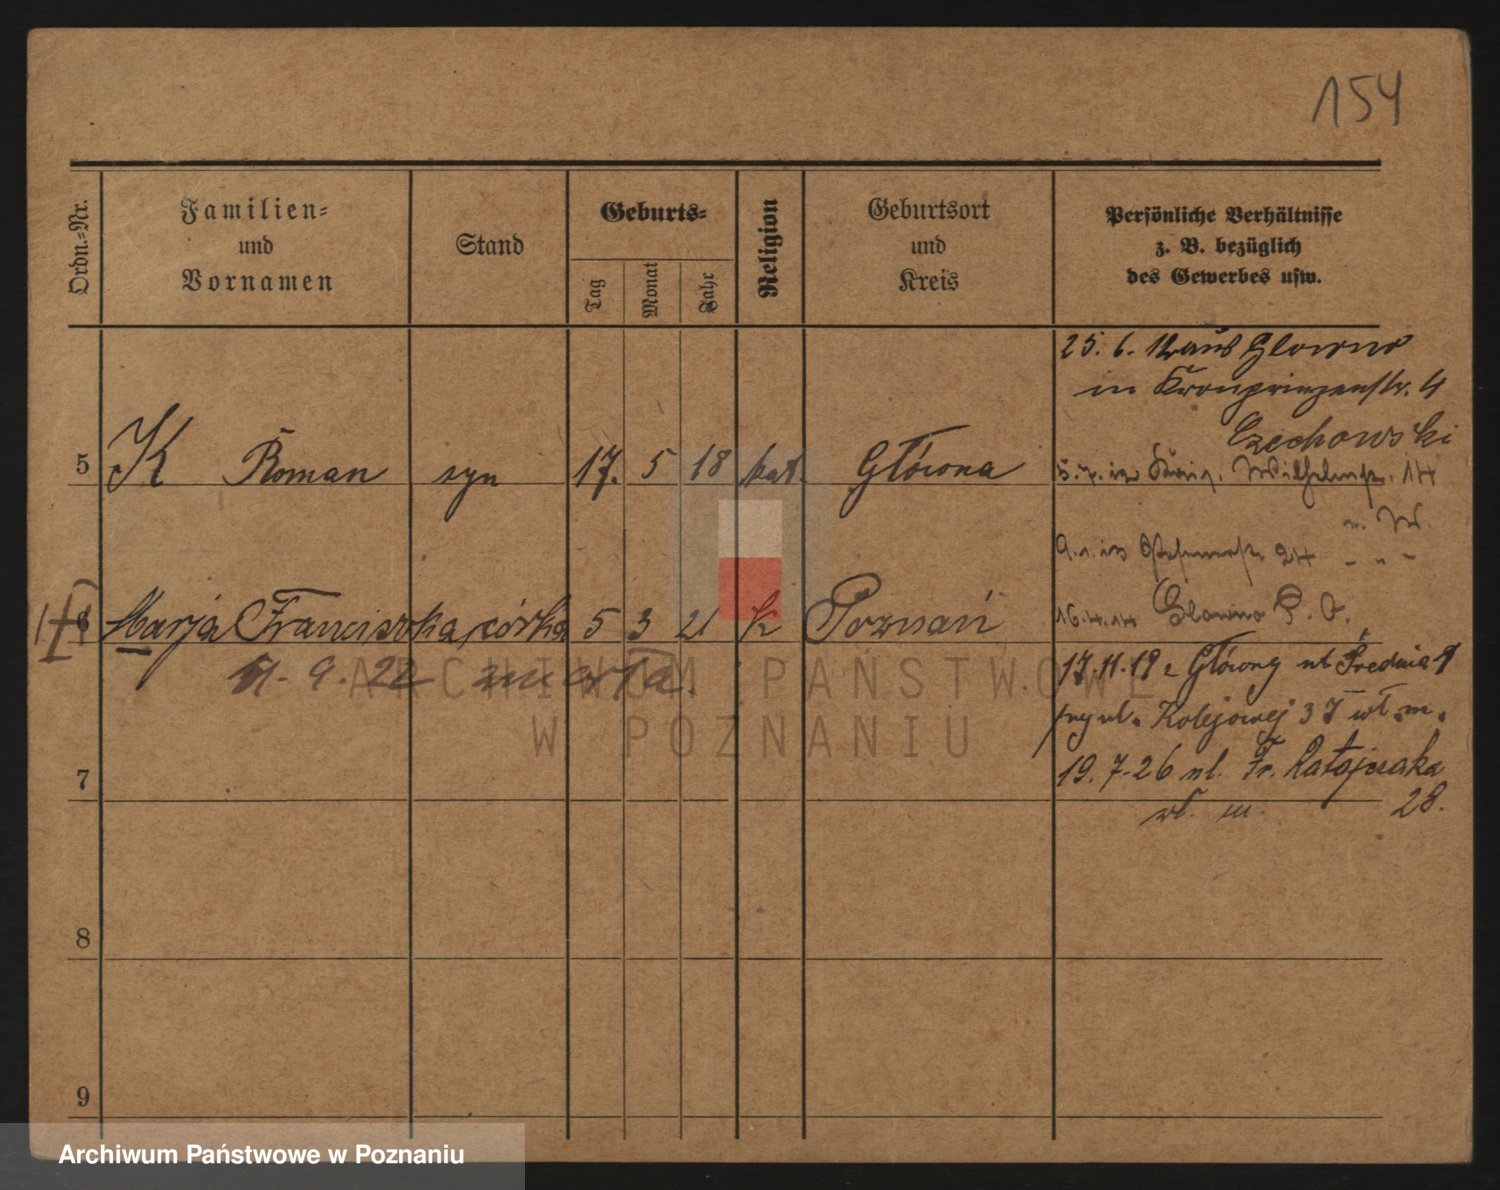 154
Ordn.=Nr.
Familien=
und
Vornamen
Stand
Geburts=
Tag
Monat
Jahr
Religion
Geburtsort
und
Kreis
Persönliche Verhältnisse
z. B. bezüglich
des Gewerbes usw.
25. 6. 12 aus Glowno
in Kronprinzenstr. 4
Czechowski
5 K Roman syn 17. 5 18 kat. Główna
5.7.12 Wilhelmstr. 14
9.1.13 24
6 Marja Franciszka, córka 5 3 21 k Poznań
16.4.14 Glowno P. O.
11. 9. 22 zmarła.
17.11.19 z Główny ul. Średnia 9
przy ul. Kolejowej 37 wł. m.
19. 7. 26 ul. Fr. Ratajczaka
28.
wł. m.
7
8
9
ARCHIWUM PAŃSTWOWE
W POZNANIU
Archiwum Państwowe w Poznaniu